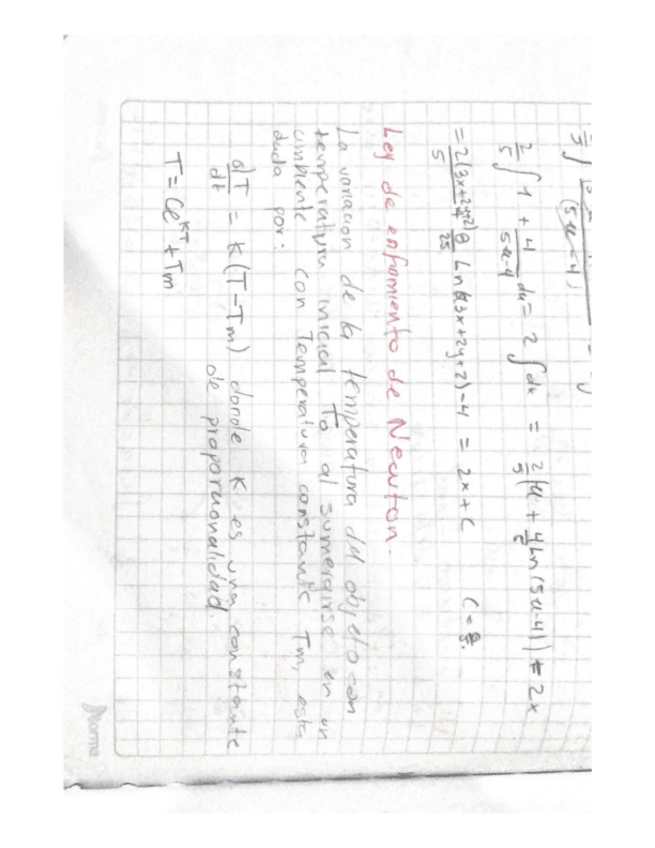 2/5 ∫ 1 + 4/(5u-4) du = 2 ∫ du = 2/5 (u + 4/5 Ln(5u-4)) = 2x
= 2(3x+2y+2)/5 8/25 Ln (3x+2y+2)-4 = 2x + C
Ley de enfriamiento de Newton.
La variacion de la temperatura del objeto con
temperatura inicial To al sumergirse en un
ambiente con Temperatura constante Tm, esta
dada por:
dT/dt = K(T-Tm) donde K es una constante
de proporcionalidad.
T = Ce^KT + Tm
Norma